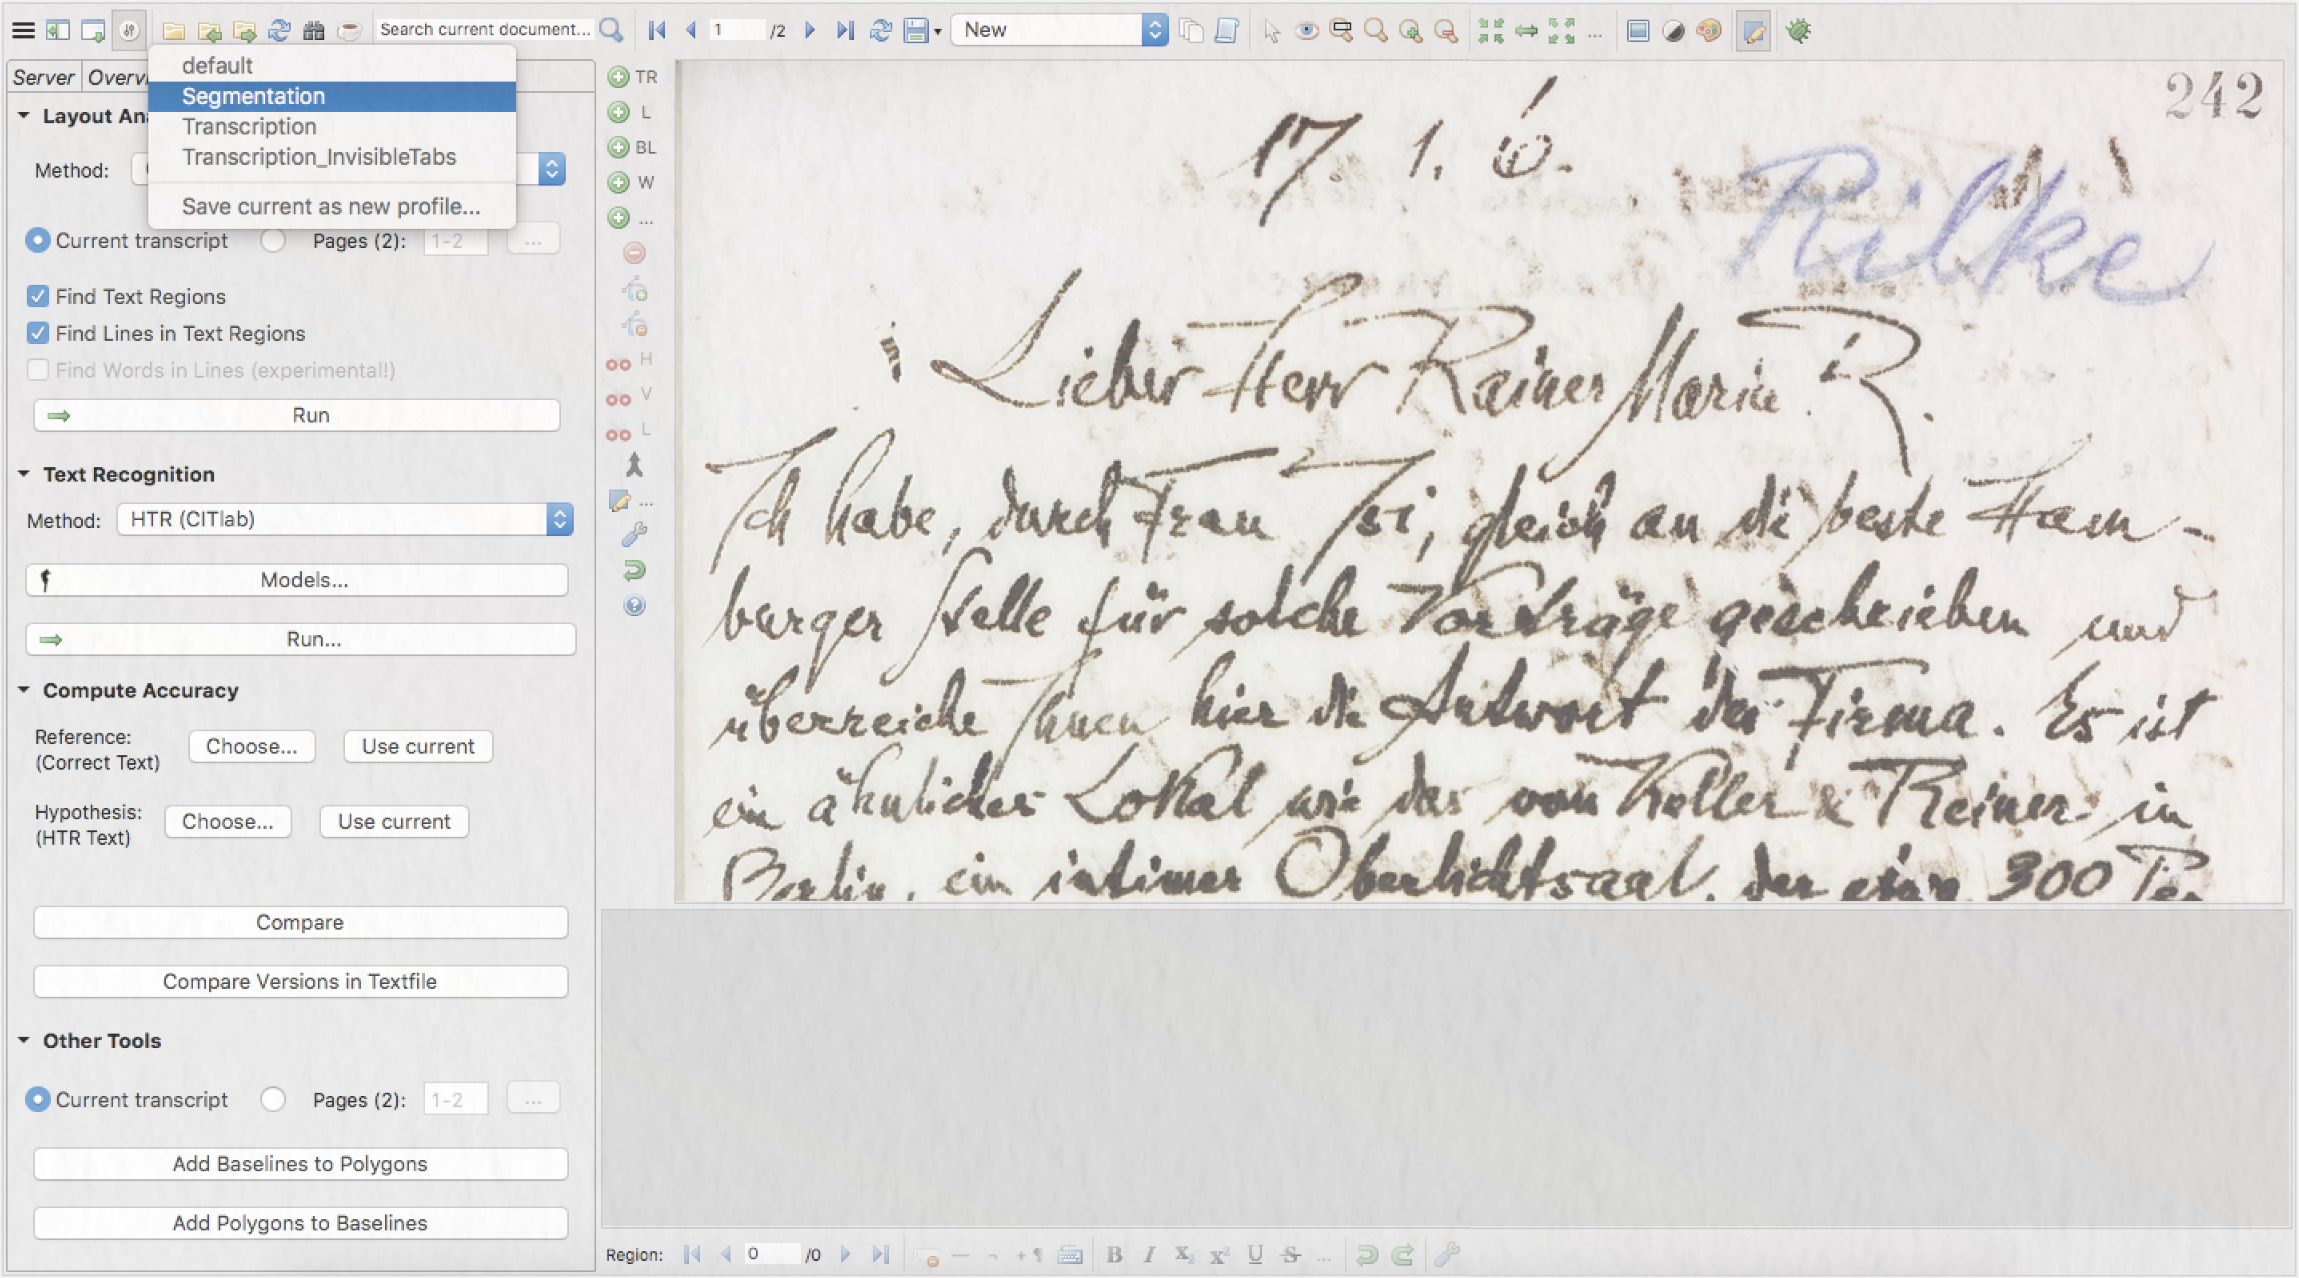 Search current document...
1 /2
New
default
Segmentation
Transcription
Transcription_InvisibleTabs
Save current as new profile...
Server Overv
Layout Ana
Method:
Current transcript Pages (2): 1-2 ...
Find Text Regions
Find Lines in Text Regions
Find Words in Lines (experimental!)
Run
Text Recognition
Method: HTR (CITlab)
Models...
Run...
Compute Accuracy
Reference:
(Correct Text)
Choose... Use current
Hypothesis:
(HTR Text)
Choose... Use current
Compare
Compare Versions in Textfile
Other Tools
Current transcript Pages (2): 1-2 ...
Add Baselines to Polygons
Add Polygons to Baselines
TR
L
BL
W
...
H
V
L
...
242
17. 1.
Rilke
Lieber Herr Rainer Maria R.
Ich habe, durch Frau Isi, gleich an die beste Ham-
burger Stelle für solche Vorträge geschrieben und
überreiche Ihnen hier die Antwort der Firma. Es ist
ein ähnlicher Lokal wie das von Keller & Reiner in
Berlin, ein intimer Oberlichtsaal, der etwa 300 Per
Region: 0 /0 B I X₂ X² U S ...